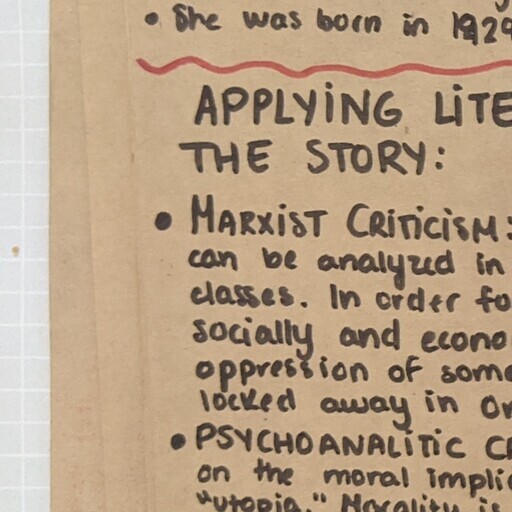 • She was born in 1929
APPLYING LITE
THE STORY:
• MARXIST CRITICISM:
can be analyzed in
classes. In order fo
socially and econo
oppression of some
locked away in or
• PSYCHOANALITIC CR
on the moral implic
"utopia." Morality is